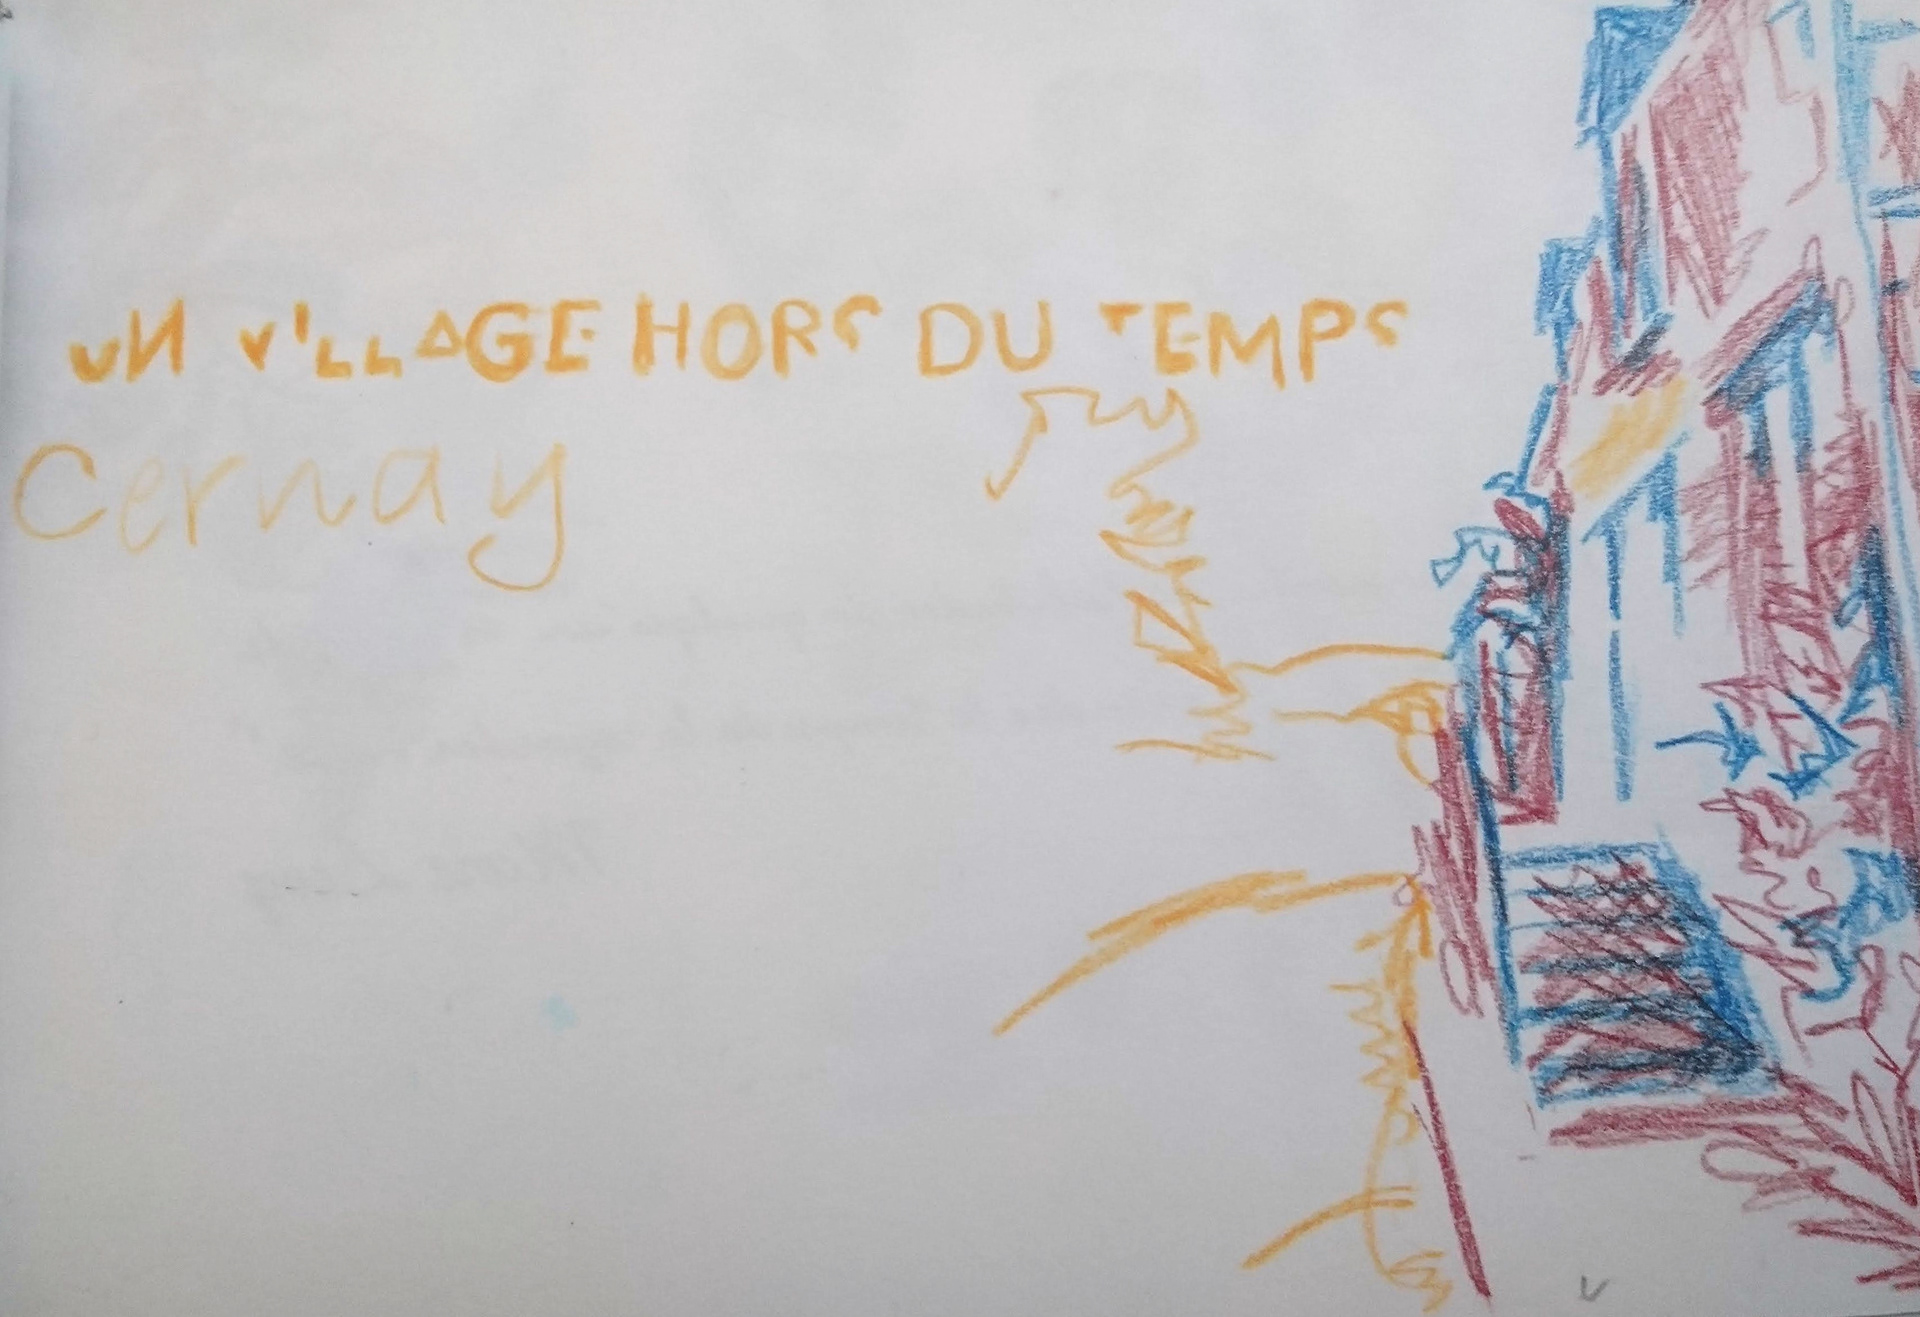 UN VILLAGE HORS DU TEMPS
Cernay